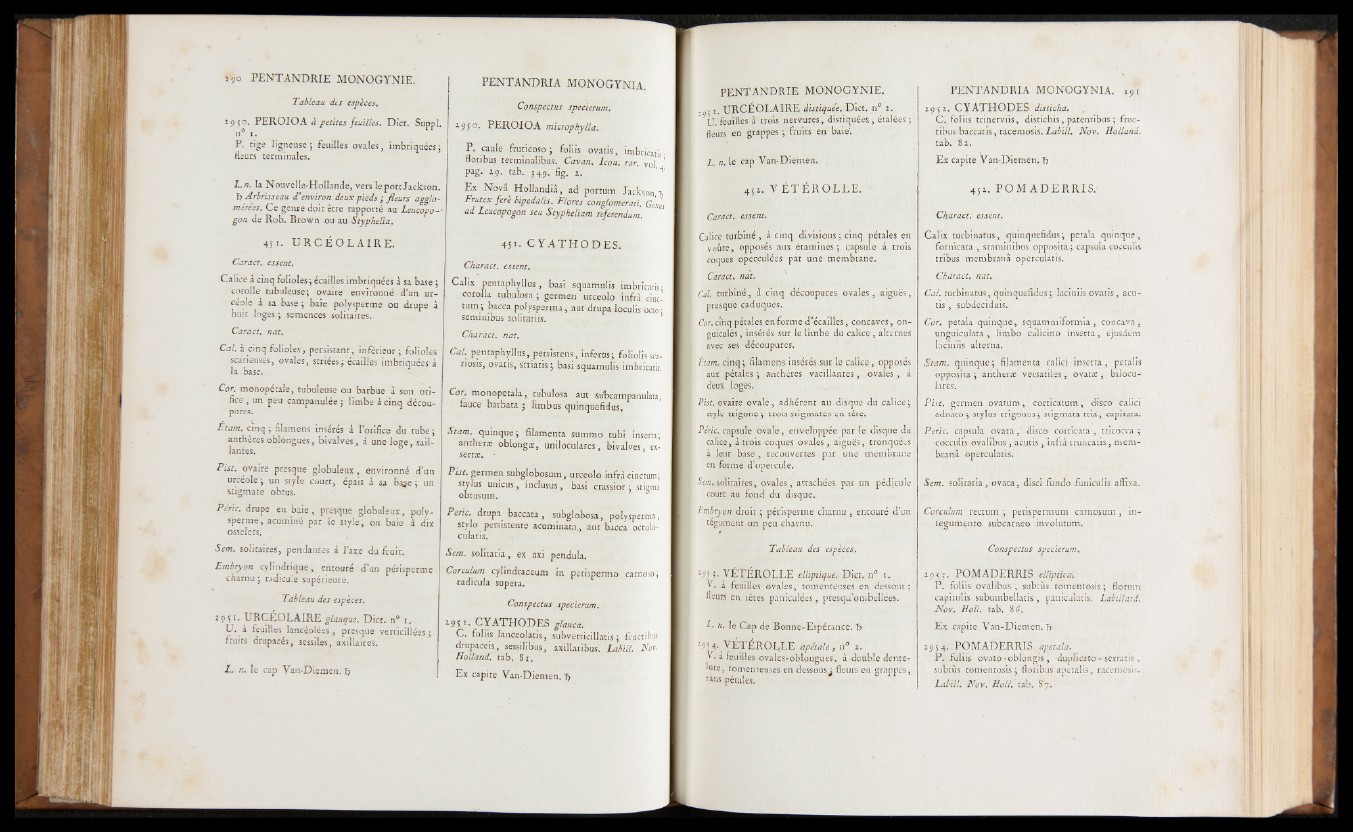 190 PENTANDRIE MONOGYNIE.
Tableau des espèces.
2950. PEROIOA à petites feuilles. Dict. Suppl.
n° 1.
P. tige ligneuse ; feuilles ovales, imbriquées ;
fleurs terminales.
L. n. la Nouvelle-Hollande, vers le port Jackson.
♄ Arbrisseau d'environ deux pieds ; fleurs agglo-
mérées. Ce genre doit être rapporté au Leucopo-
gon de Rob. Brown ou au Styphelia.
451. URCÉOLAIRE.
Caract. essent.
Calice à cinq folioles ; écailles imbriquées à sa base ;
corolle tubuleuse ; ovaire environné d'un ur-
céole à sa base ; baie polysperme ou drupe à
huit loges ; semences solitaires.
Caract. nat.
Cal. à cinq folioles, persistant, inférieur ; folioles
scarieuses, ovales, striées ; écailles imbriquées à
la base.
Cor. monopétale, tubuleuse ou barbue à son ori-
fice, un peu campanulée ; limbe à cinq décou-
pures.
Étam. cinq ; filamens insérés à l'orifice du tube ;
anthères oblongues, bivalves, à une loge, sail-
lantes.
Pist. ovaire presque globuleux, environné d'un
urcéole ; un style court, épais à sa base ; un
stigmate obtus.
Péric. drupe en baie, presque globuleux, poly-
sperme, acuminé par le style, ou baie à dix
osselets.
Sem. solitaires, pendantes à l'axe du fruit.
Embryon cylindrique, entouré d'un périsperme
charnu ; radicule supérieure.
Tableau des espèces.
2951. URCÉOLAIRE glauque. Dict. n° 1.
U. à feuilles lancéolées, presque verticillées ;
fruits drupacés, sessiles, axillaires.
L. n. le cap Van-Diemen. ♄
PENTANDRIA MONOGYNIA.
Conspectus specierum.
2950. PEROIOA microphylla.
P. caule fruticoso ; foliis ovatis, imbricatis ;
floribus terminalibus. Cavan. Icon. rar. vol. 4,
pag. 29. tab. 349. fig. 2.
Ex Novâ Hollandiâ, ad portum Jackson. ♄
Frutex ferè bipedalis. Flores conglomerati. Genus
ad Leucopogon seu Stypheliam referendum.
451. CYATHODES.
Charact. essent.
Calix pentaphyllus, basi squamulis imbricatis ;
corolla tubulosa ; germen urceolo infrà cinc-
tum ; bacca polysperma, aut drupa loculis octo ;
seminibus solitariis.
Charact. nat.
Cal. pentaphyllus, persistens, inferus ; foliolis sca-
riosis, ovatis, striatis ; basi squamulis imbricatis.
Cor. monopetala, tubulosa aut subcampanulata,
fauce barbata ; limbus quinquefidus.
Stam. quinque ; filamenta summo tubi inserta ;
antheræ oblongæ, uniloculares, bivalves, ex-
sertæ.
Pist. germen subglobosum, urceolo infrà cinctum ;
stylus unicus, inclusus, basi crassior ; stigma
obtusum.
Peric. drupa baccata, subglobosa, polysperma,
stylo persistente acuminata, aut bacca octolo-
cularis.
Sem. solitaria, ex axi pendula.
Corculum cylindraceum in perispermo carnoso ;
radicula supera.
Conspectus specierum.
2951. CYATHODES glauca.
C. foliis lanceolatis, subverticillatis ; fructibus
drupaceis, sessilibus, axillaribus. Labill. Nov.
Holland. tab. 81.
Ex capite Van-Diemen. ♄
PENTANDRIE MONOGYNIE.
2952. URCÉOLAIRE distiquée. Dict. n° 2.
U. feuilles à trois nervures, distiquées, étalées ;
fleurs en grappes ; fruits en baie.
L. n. le cap Van-Diemen.
452. VÉTÉROLLE.
Caract. essent.
Calice turbiné, à cinq divisions ; cinq pétales en
voûte, opposés aux étamines ; capsule à trois
coques operculées par une membrane.
Caract. nat.
Cal. turbiné, à cinq découpures ovales, aiguës,
presque caduques.
Cor. cinq pétales en forme d'écailles, concaves, on-
guiculés, insérés sur le limbe du calice, alternes
avec ses découpures.
Étam. cinq ; filamens insérés sur le calice, opposés
aux pétales ; anthères vacillantes, ovales, à
deux loges.
Pist. ovaire ovale, adhérent au disque du calice ;
style trigone ; trois stigmates en tête.
Péric. capsule ovale, enveloppée par le disque du
calice, à trois coques ovales, aiguës, tronquées
à leur base, recouvertes par une membrane
en forme d'opercule.
Sem. solitaires, ovales, attachées par un pédicule
court au fond du disque.
Embryon droit ; périsperme charnu, entouré d'un
tégument un peu charnu.
Tableau des espèces.
2953. VÉTÉROLLE elliptique. Dict. n° 1.
V. à feuilles ovales, tomenteuses en dessous ;
fleurs en têtes paniculées, presqu'ombellées.
L. n. le Cap de Bonne-Espérance. ♄
2954. VÉTÉROLLE apétale, n° 2.
V. à feuilles ovales-oblongues, à double dente-
lure, tomenteuses en dessous ; fleurs en grappes,
sans pétales.
PENTANDRIA MONOGYNIA. 191
2952. CYATHODES disticha.
C. foliis trinerviis, distichis, patentibus ; fruc-
tibus baccatis, racemosis. Labill. Nov. Holland.
tab. 82.
Ex capite Van-Diemen. ♄
452. POMADERRIS.
Charact. essent.
Calix turbinatus, quinquefidus ; petala quinque,
fornicata, staminibus opposita ; capsula cocculis
tribus membranâ operculatis.
Charact. nat.
Cal. turbinatus, quinquefidus ; laciniis ovatis, acu-
tis, subdeciduis.
Cor. petala quinque, squammiformia, concava,
unguiculata, limbo calicino inserta, ejusdem
laciniis alterna.
Stam. quinque ; filamenta calici inserta, petalis
opposita ; antheræ versatiles, ovatæ, bilocu-
lares.
Pist. germen ovatum, corticatum, disco calici
adnato ; stylus trigonus ; stigmata tria, capitata.
Peric. capsula ovata, disco corticata, tricocca ;
cocculis ovalibus, acutis, infrà truncatis, mem-
branâ operculatis.
Sem. solitaria, ovata, disci fundo funiculis affixa.
Corculum rectum ; perispermum carnosum, in-
tegumento subcarneo involutum.
Conspectus specierum.
2953. POMADERRIS elliptica.
P. foliis ovalibus, subtùs tomentosis ; florum
capitulis subumbellatis, paniculatis. Labillard.
Nov. Holl. tab. 86.
Ex capite Van-Diemen. ♄
2954. POMADERRIS apetala.
P. foliis ovato-oblongis, duplicato-serratis,
subtùs tomentosis ; floribus apetalis, racemosis.
Labill. Nov. Holl. tab. 87.